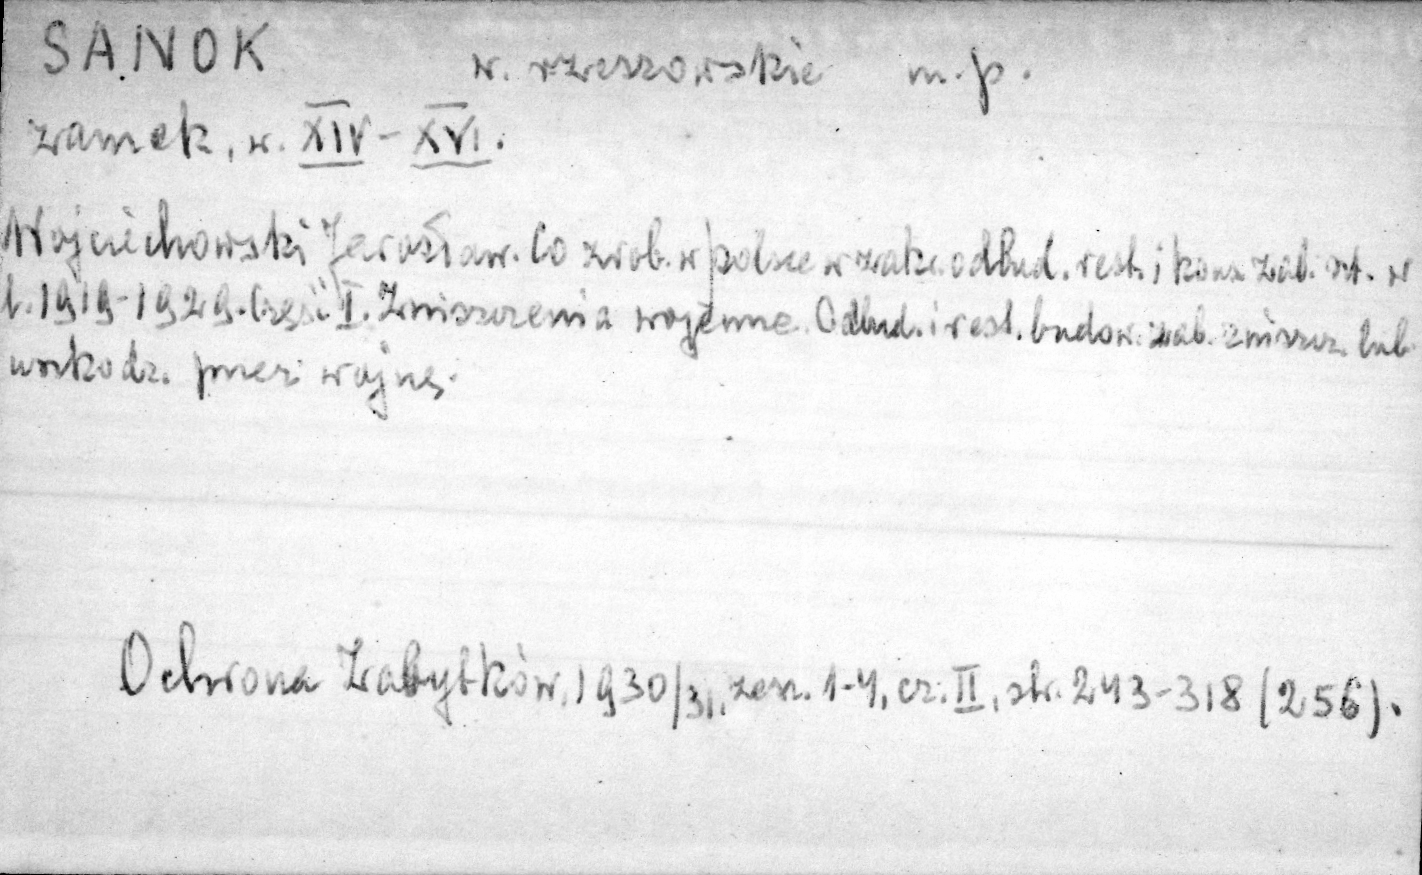 SANOK w. rzeszowskie m. p.
zamek, w. XIV-XVI.
Wojciechowski Jarosław. Co zrob. w polsce w zakr. odbud. rest. i kons. zab. szt. w
l. 1919-1929. Część I. Zniszczenia wojenne. Odbud. i rest. budow. zab. zniszcz. lub
uszkodz. przez wojnę.
Ochrona Zabytków, 1930/31, zesz. 1-4, cz. II, str. 243-318 (256).